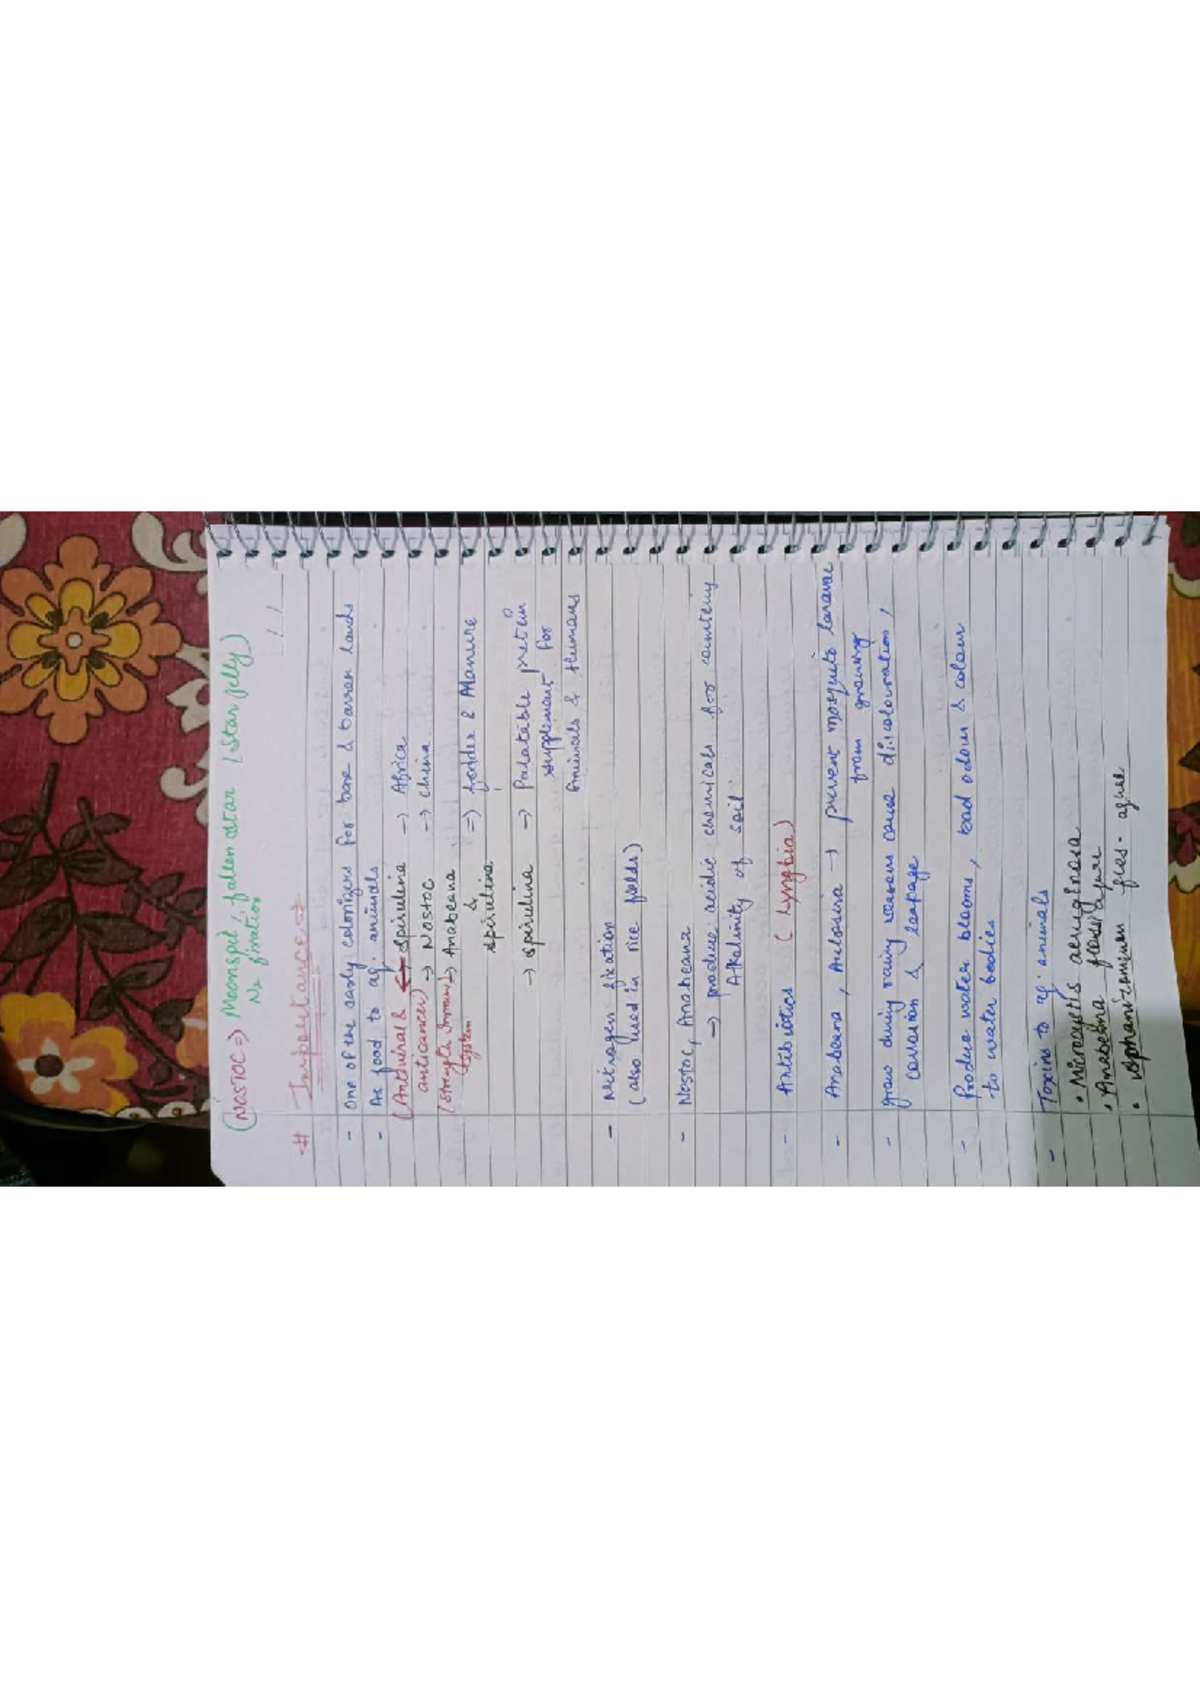 (NOSTOC => Moonspit, fallen star (Star jelly)
N2 fixation
# Importance →
- One of the early colonizers for bare & barren lands
- As food to aq. animals
(Antiviral & ← spirulina → Africa
anticancer) → Nostoc → china
(Strength Immune → Anabeana => fodder & Manure
system &
spirulina
→ spirulina → Palatable protein
supplement for
Animals & Humans
- Nitrogen fixation
(also used in rice fields)
- Nostoc, Anabeana
→ produce acidic chemicals for countering
Alkalinity of soil
- Antibiotics (Lyngbia)
- Anabeana, Aulosira → prevent mosquito laravae
from growing
- grow during rainy seasons cause discolouration,
corrosion & leakage
- Produce water blooms, bad odour & colour
to water bodies
- Toxins to aq. animals
• Microcystis aeruginosa
• Anabeana flosaquae
• flos-aquae